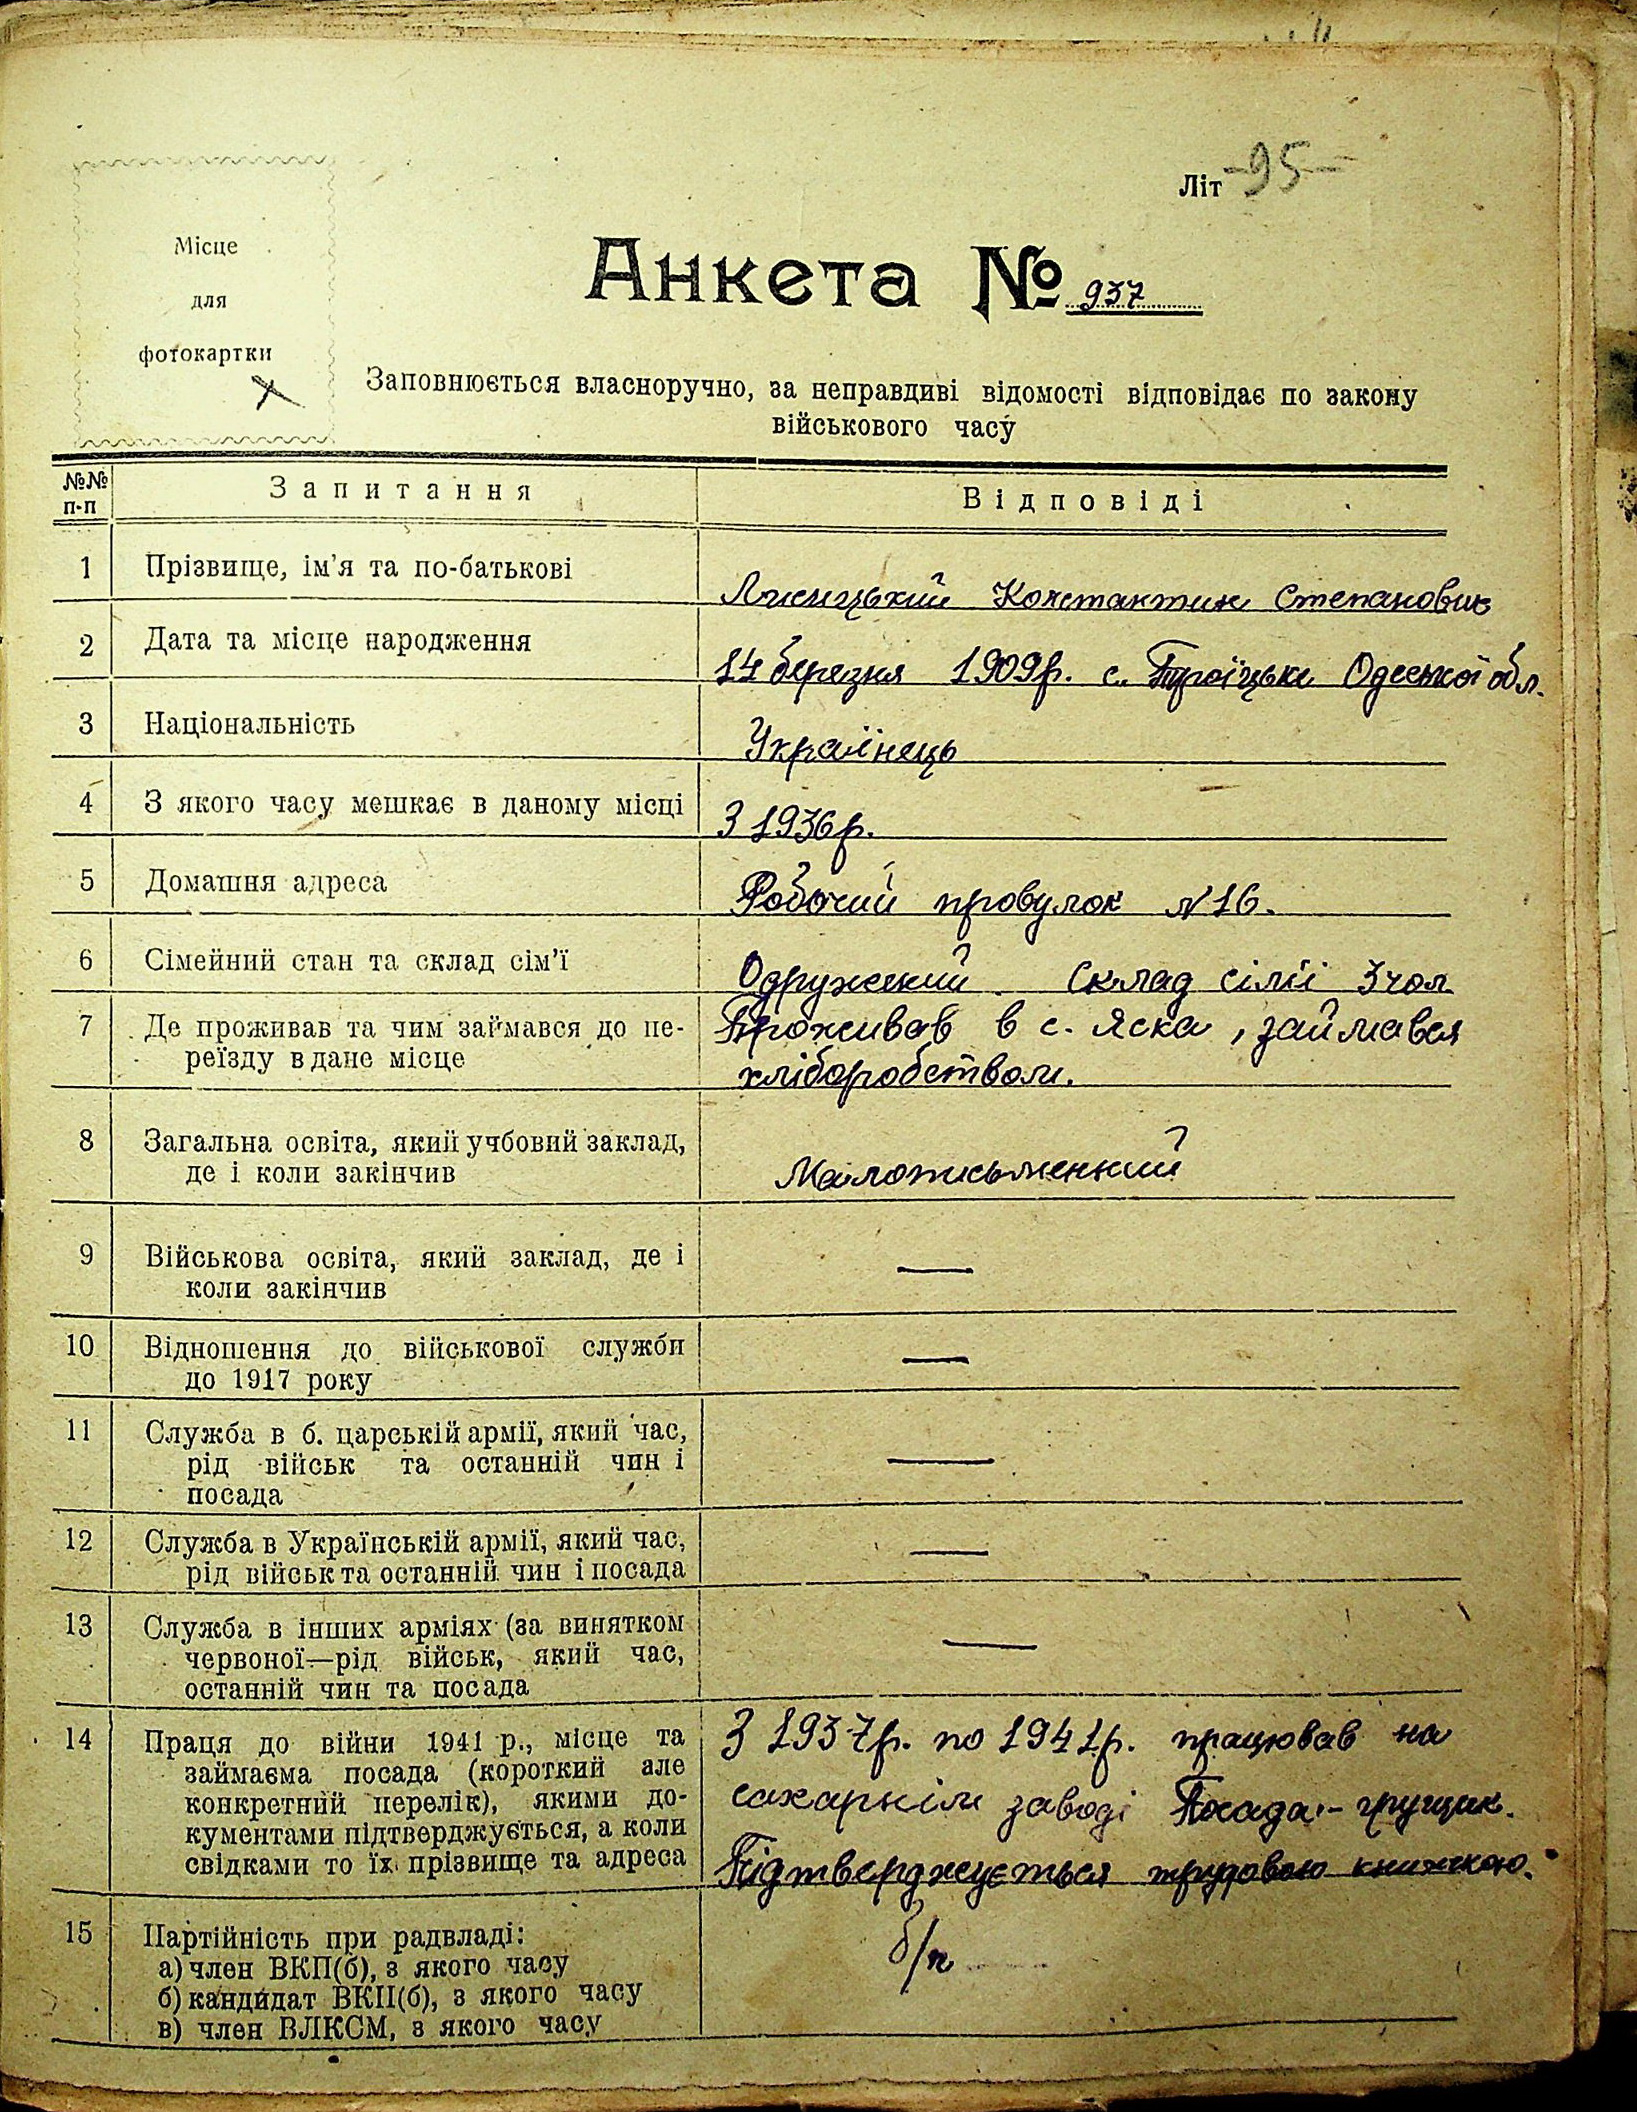 Літ -95-
Місце
для
фотокартки
Анкета № 937
Заповнюється власноручно, за неправдиві відомості відповідає по закону
військового часу
№№ п-п Запитання Відповіді
1 Прізвище, ім'я та по-батькові
Константин Степанович
2 Дата та місце народження
14 березня 1909р. с. Троїцьке Одеської обл.
3 Національність
Українець
4 З якого часу мешкає в даному місці
З 1936р.
5 Домашня адреса
Робочий провулок №16.
6 Сімейний стан та склад сім'ї
Одружений. Склад сімії 3 чол
7 Де проживав та чим займався до пе-
реїзду в дане місце
Проживав в с. Яска, займався
хліборобством.
8 Загальна освіта, який учбовий заклад,
де і коли закінчив
Малописьменний
9 Військова освіта, який заклад, де і
коли закінчив
—
10 Відношення до військової служби
до 1917 року
—
11 Служба в б. царській армії, який час,
рід військ та останній чин і
посада
—
12 Служба в Українській армії, який час,
рід військ та останній чин і посада
—
13 Служба в інших арміях (за винятком
червоної—рід військ, який час,
останній чин та посада
—
14 Праця до війни 1941 р., місце та
займаєма посада (короткий але
конкретний перелік), якими до-
кументами підтверджується, а коли
свідками то їх прізвище та адреса
З 1937р. по 1941р. працював на
сахарнім заводі Посада:- грущик.
Підтверджується трудовою книжкою.
15 Партійність при радвладі:
а) член ВКП(б), з якого часу
б) кандидат ВКП(б), з якого часу
в) член ВЛКСМ, з якого часу
б/п